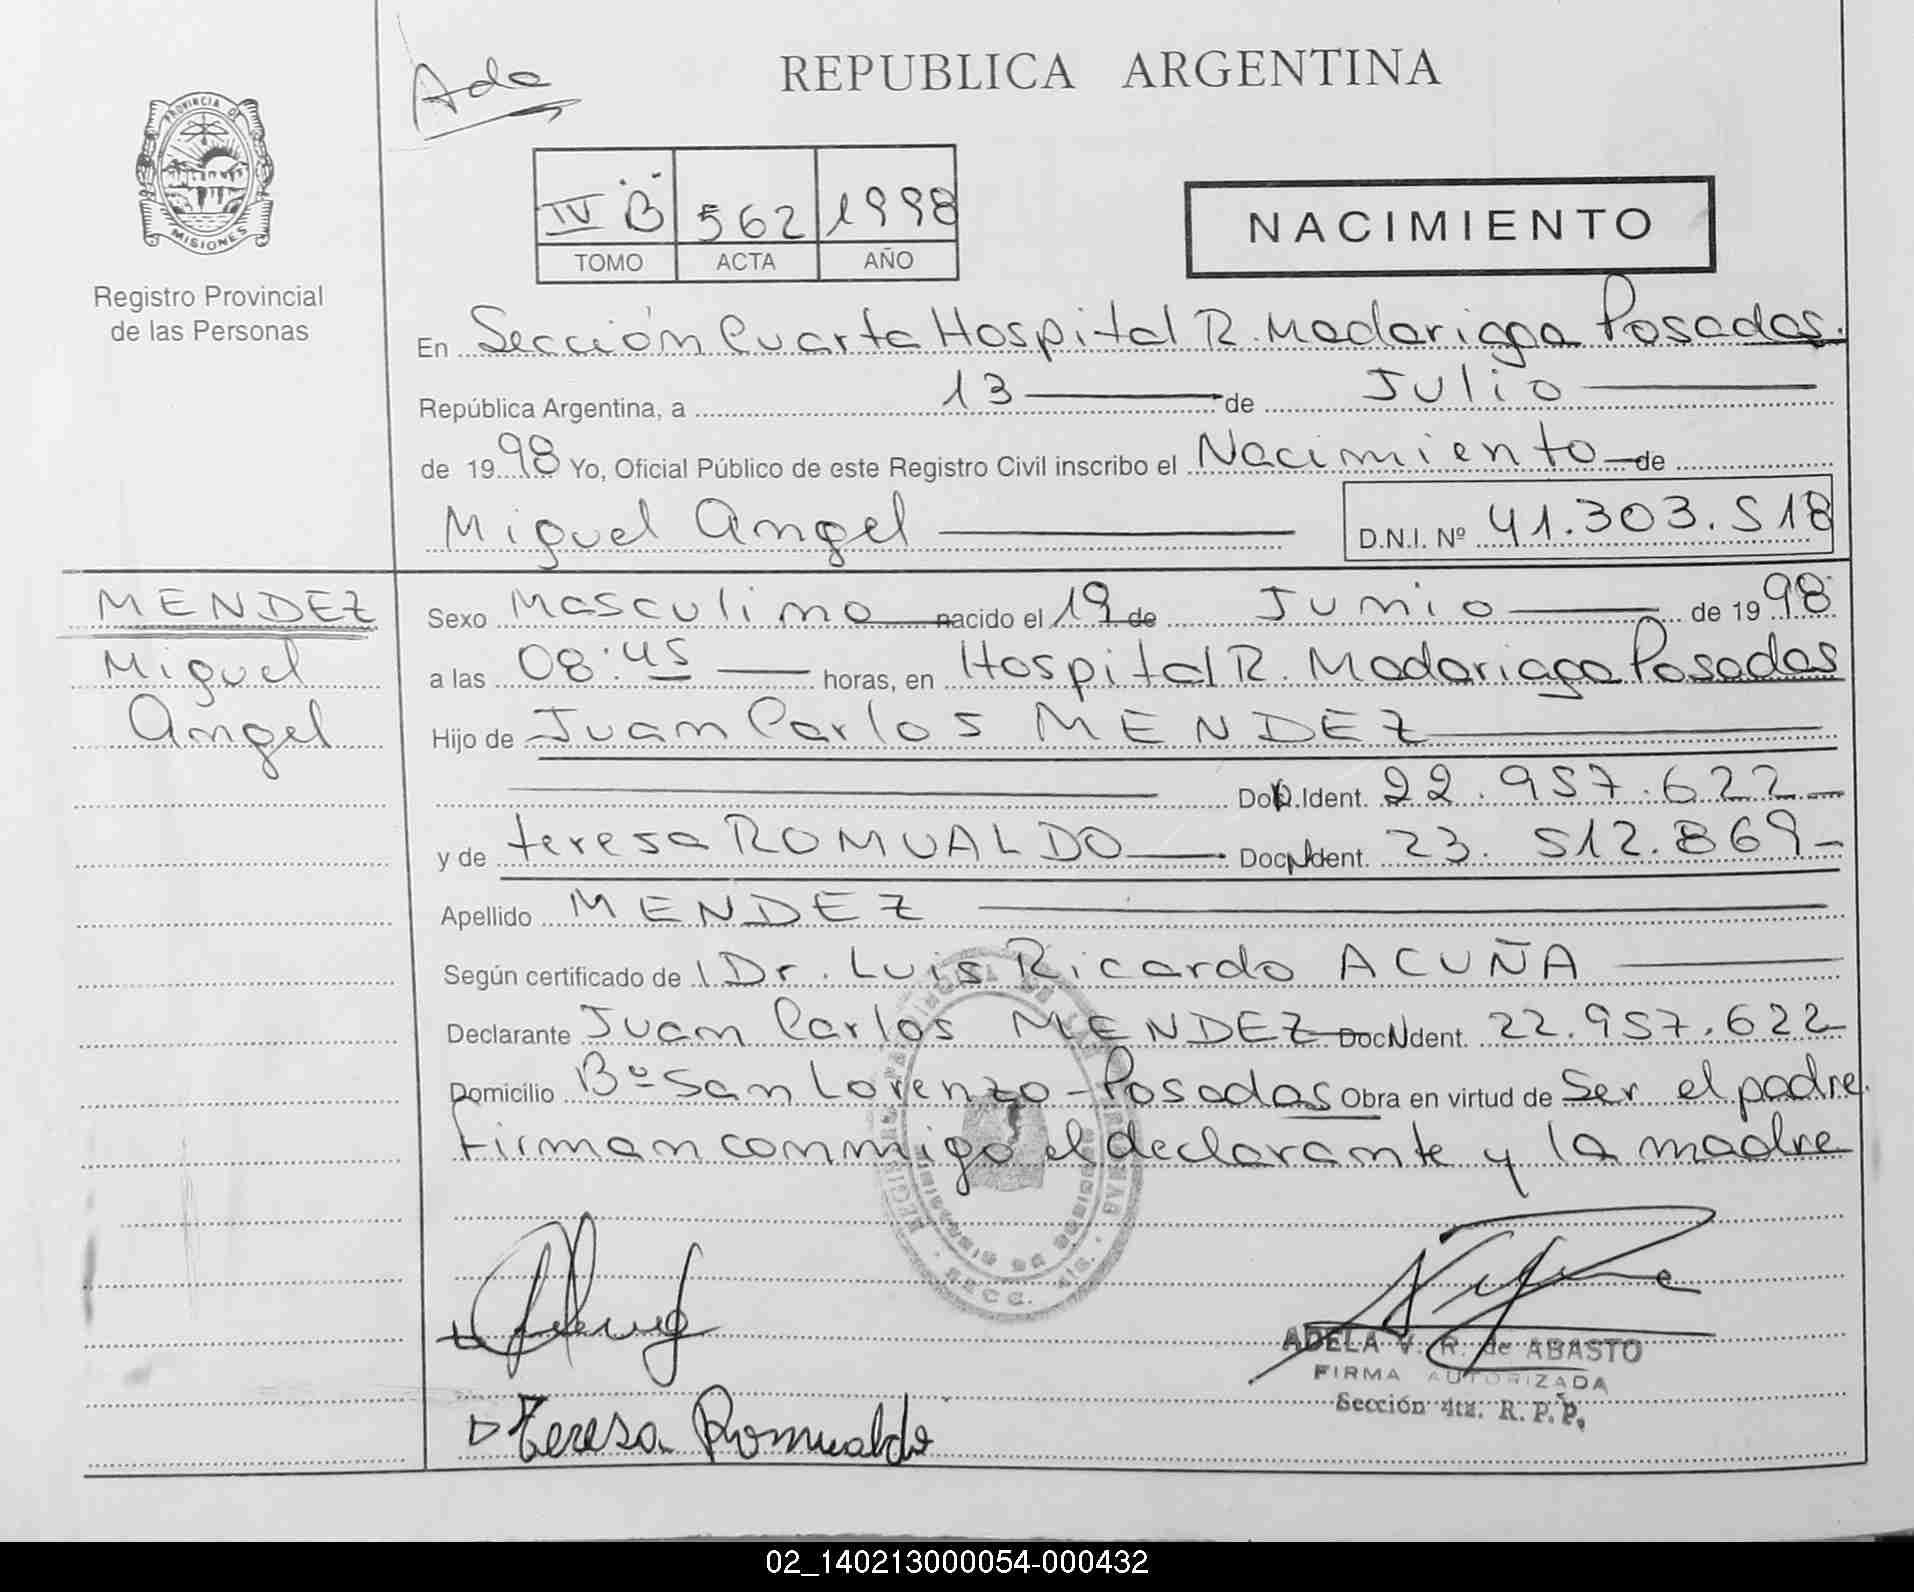 Ada
REPUBLICA ARGENTINA
PROVINCIA DE
MISIONES
Registro Provincial
de las Personas
IV "B" 562 1998
TOMO ACTA AÑO
NACIMIENTO
En Sección Cuarta Hospital R. Madariaga Posadas.
República Argentina, a 13 de Julio
de 1998 Yo, Oficial Público de este Registro Civil inscribo el Nacimiento de
Miguel Angel D.N.I. Nº 41.303.518
MENDEZ
Miguel
Angel
Sexo Masculino nacido el 19 de Junio de 1998
a las 08:45 horas, en Hospital R. Madariaga Posadas
Hijo de Juan Carlos MENDEZ
Doc. Ident. 22.957.622
y de teresa ROMUALDO Doc. Ident. 23.512.869
Apellido MENDEZ
Según certificado de Dr. Luis Ricardo ACUÑA
Declarante Juan Carlos MENDEZ Doc. Ident. 22.957.622
Domicilio Bº San Lorenzo - Posadas Obra en virtud de Ser el padre.
Firman conmigo el declarante y la madre
ADELA V. R. de ABASTO
FIRMA AUTORIZADA
Sección 4ta. R. P. P.
Teresa Romualdo
02_140213000054-000432